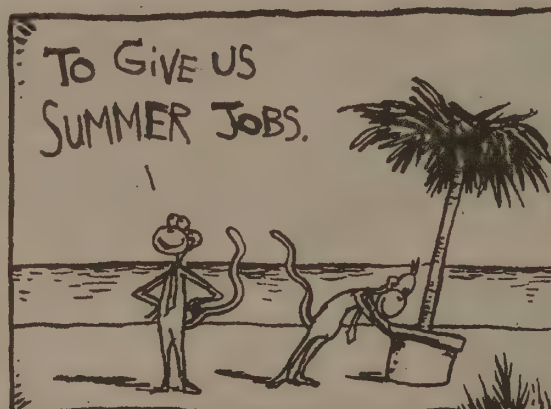 TO GiVE US
SUMMER JOBS.